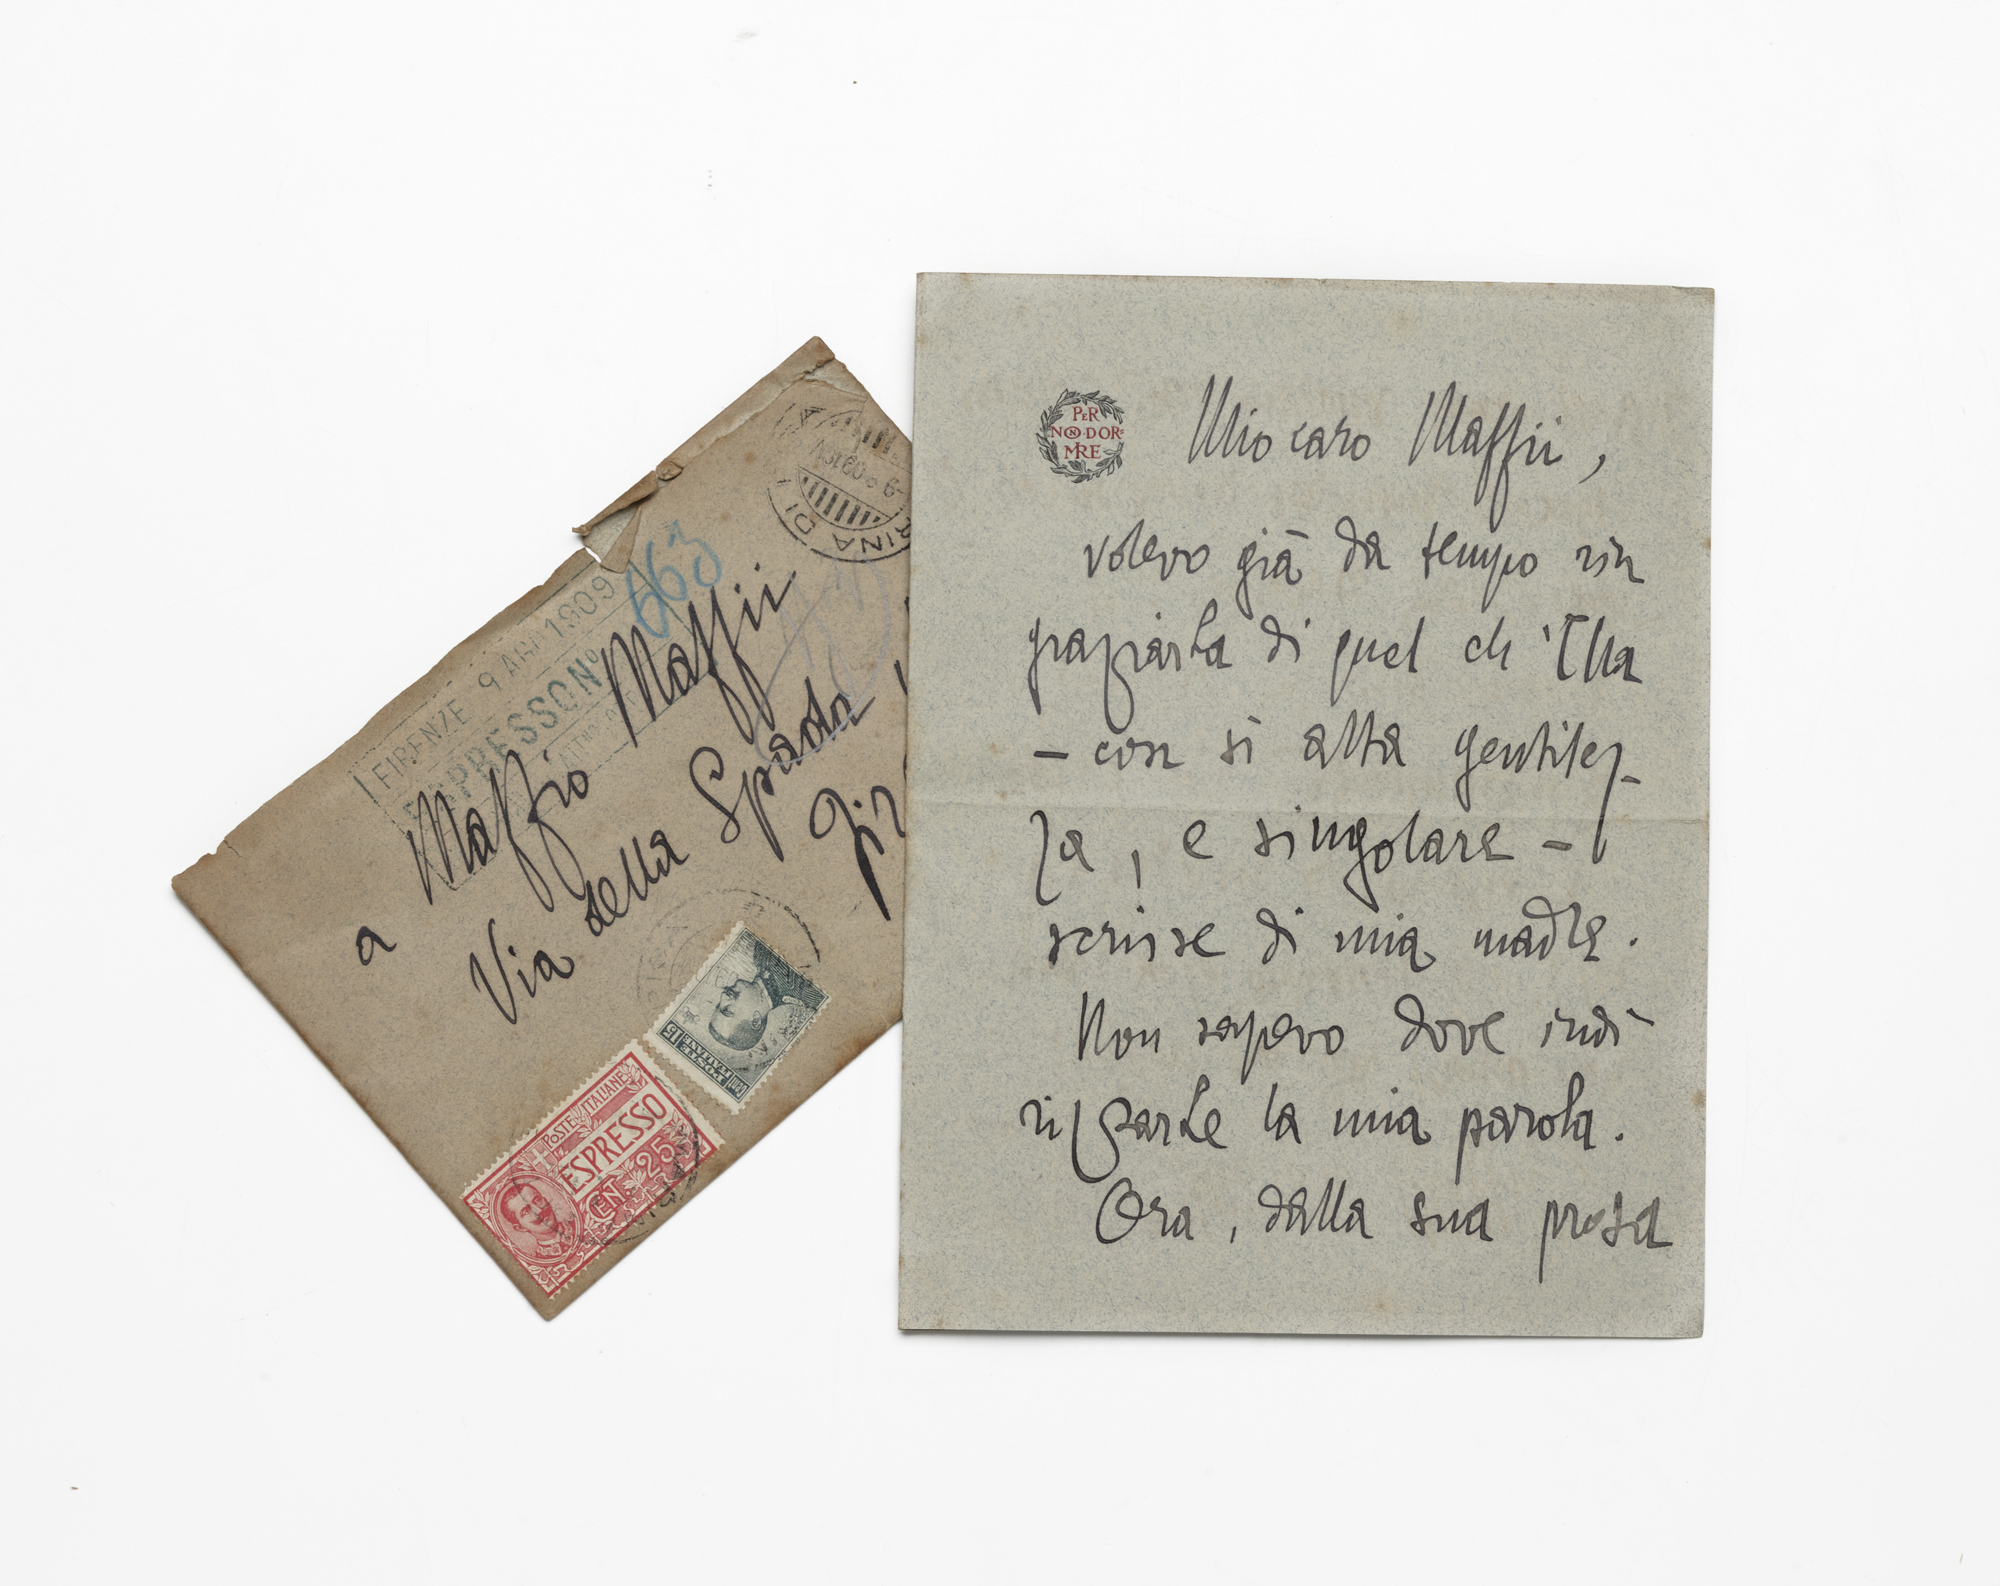 FIRENZE 9 APR 1909
ESPRESSO Nº
663
a Maffio Maffii
Via della Spada
POSTE ITALIANE
ESPRESSO
CENT. 25
POSTE ITALIANE
CENT 15
PER
NON DOR=
MIRE
Mio caro Maffii,
volevo già da tempo rin
graziarla di quel ch 'Ella
– con sì alta gentilez-
za, e singolare –
scrisse di mia madre.
Non sapevo dove indi-
rizzarle la mia parola.
Ora, dalla sua prosa